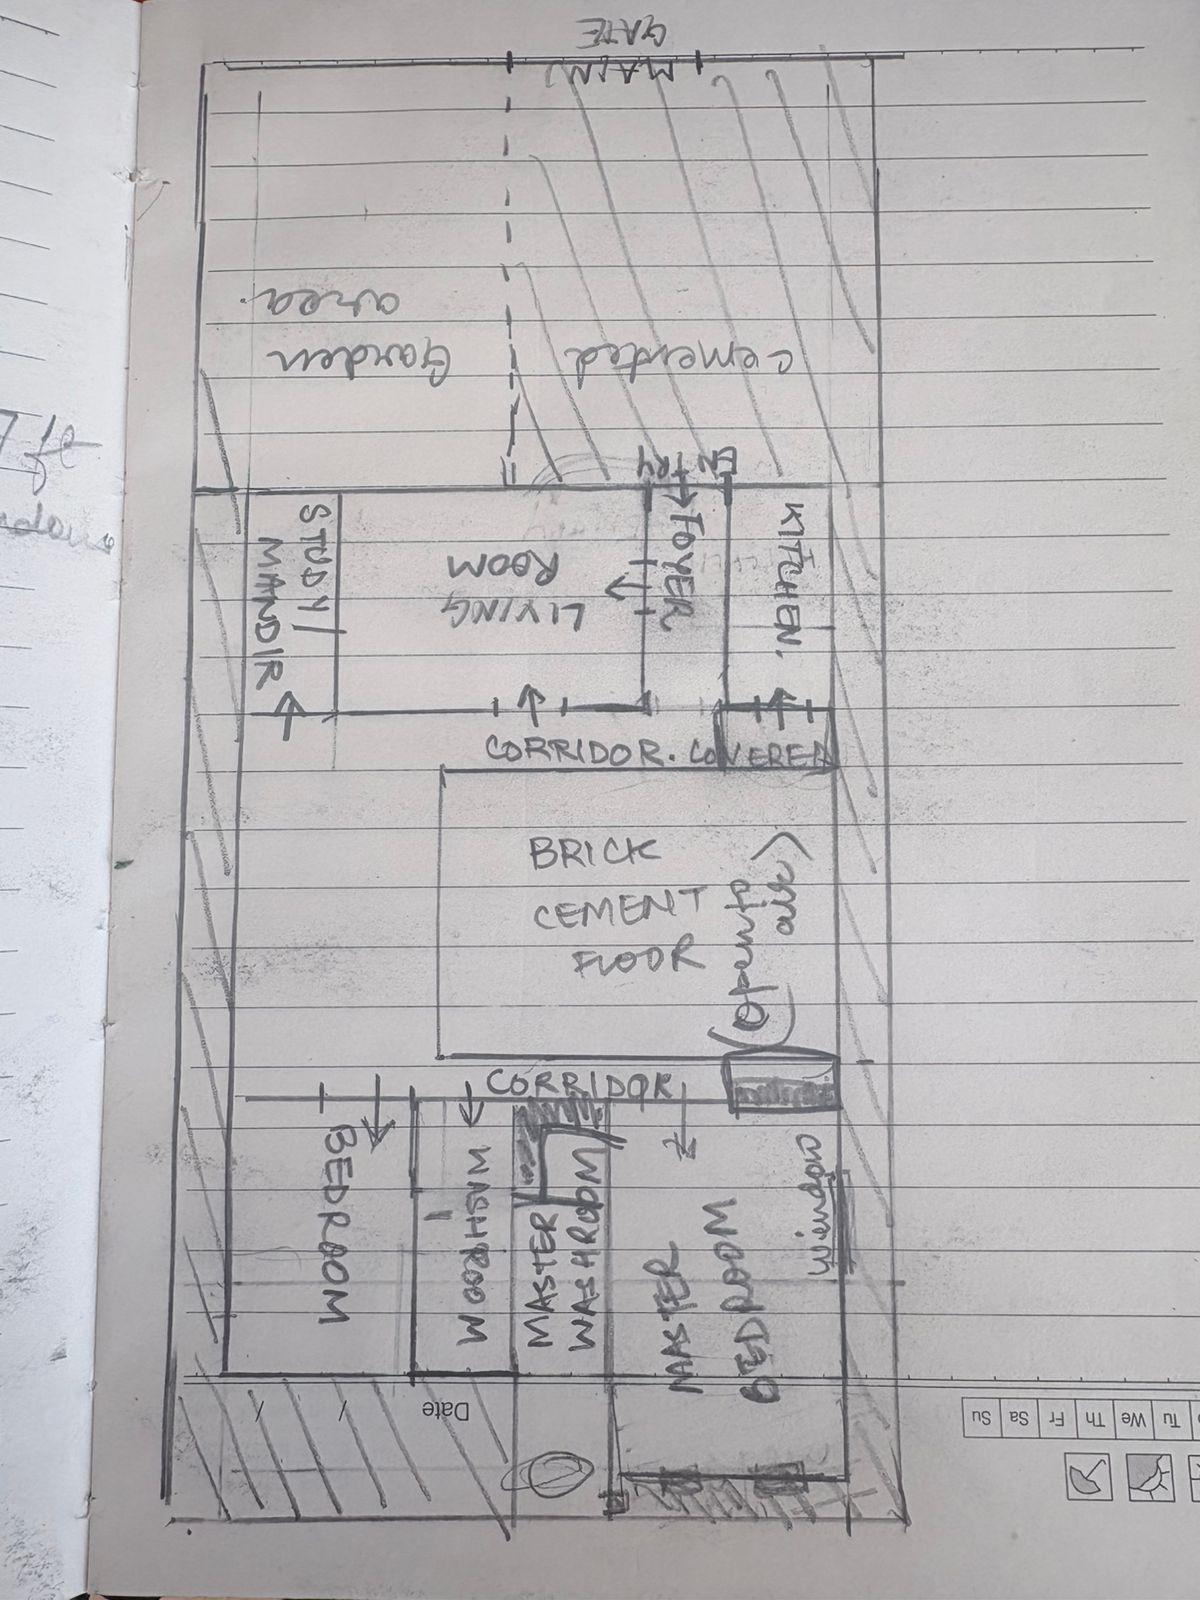 MAIN
GATE
Garden
area.
cemented
ENTRY
STUDY/
MANDIR
LIVING
ROOM
FOYER
KITCHEN.
CORRIDOR. COVERED
BRICK
CEMENT
FLOOR
air
CORRIDOR
BEDROOM
WASHROOM
MASTER
WASHROOM
MASTER
BEDROOM
Wiendow
Date / /
Tu We Th Fr Sa Su
7 ft